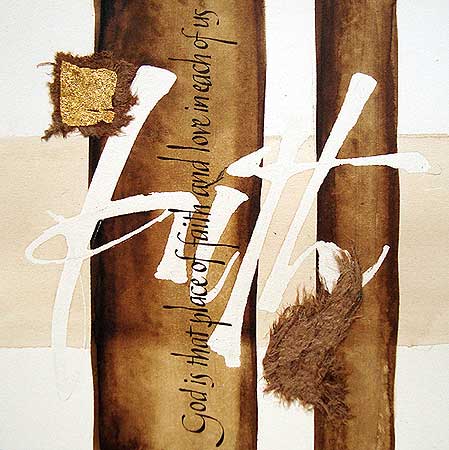 faith
God is that place of faith and love in each of us